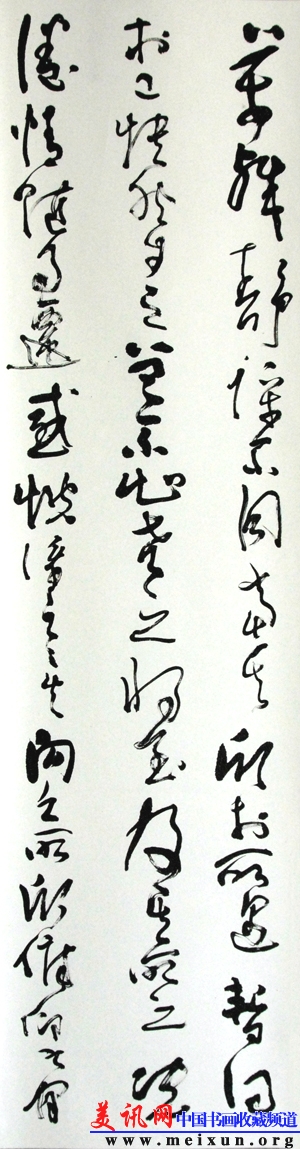 萬殊靜躁不同當其欣於所遇暫得
於己快然自足曾不知老之將至及其所之既
倦情隨事遷感慨係之矣向之所欣俛仰之間
美讯网 中国书画收藏频道
www.meixun.org